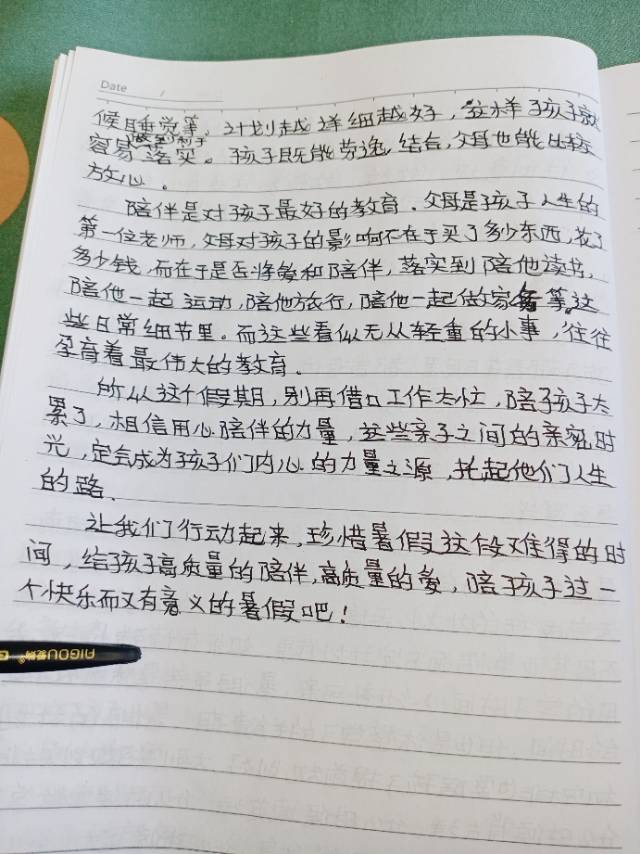 Date
候睡觉等,计划越详细越好,这样孩子就
容易做到利于落实。孩子既能劳逸结合,父母也能比较
放心。
陪伴是对孩子最好的教育,父母是孩子人生的
第一位老师,父母对孩子的影响不在于买了多少东西,花了
多少钱,而在于是否将爱和陪伴,落实到陪他读书,
陪他一起运动,陪他旅行,陪他一起做家务等这
些日常细节里。而这些看似无从轻重的小事,往往
孕育着最伟大的教育。
所从这个假期,别再借口工作太忙,陪孩子太
累了,相信用心陪伴的力量,这些亲子之间的亲密时
光,定会成为孩子们内心的力量之源,托起他们人生
的路。
让我们行动起来,珍惜暑假这段难得的时
间,给孩子高质量的陪伴,高质量的爱,陪孩子过一
个快乐而又有意义的暑假吧!
AIGOU爱购®